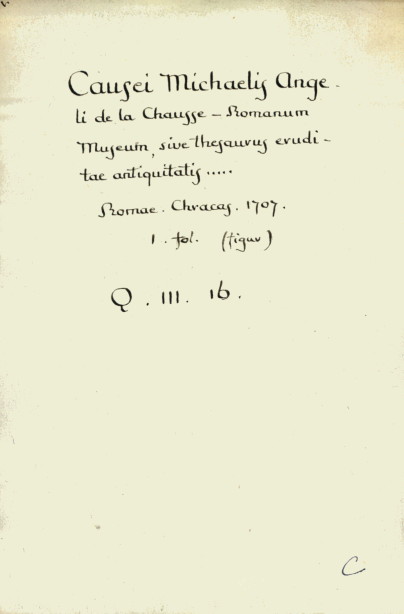 Causei Michaelis Ange-
li de la Chausse - Romanum
Museum, sive thesaurus erudi-
tae antiquitatis .....
Romae. Chracas. 1707.
1. fol. (figur)
Q. III. 16.
C